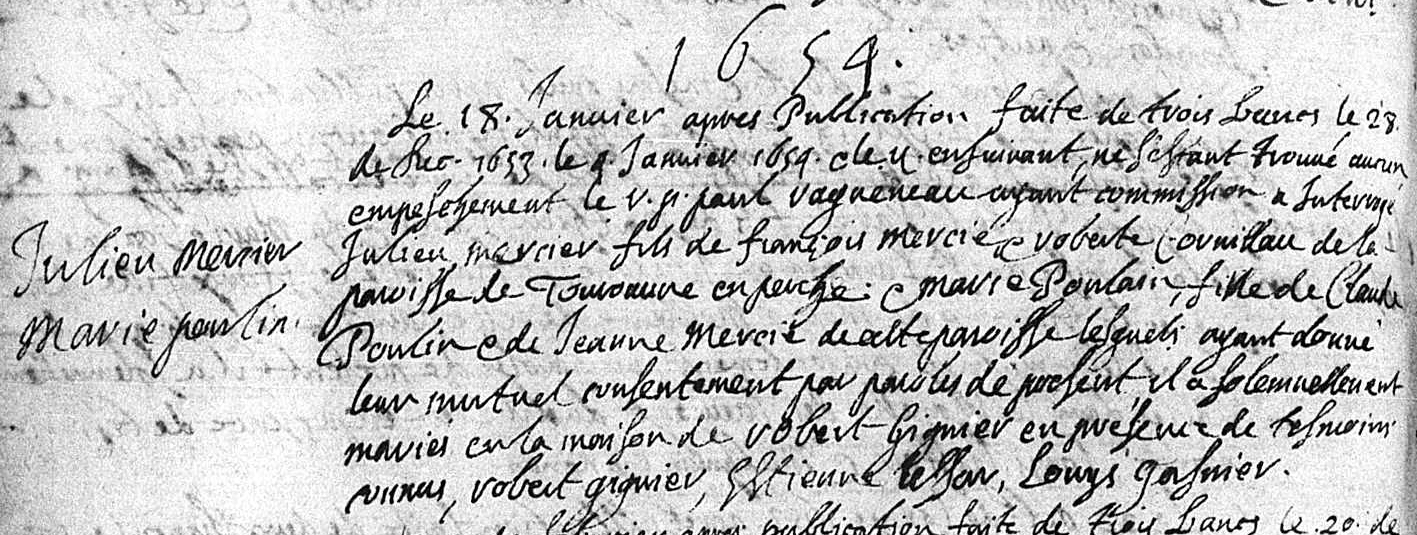 1654.
Le 18. Janvier apres Publication faite de trois bancs le 28.
de Dec. 1653. le 4 Janvier 1654. & le 11. ensuivant, ne s'estant trouvé aucun
empeschement le r. p. paul vagueneau ayant commission a Interrogé
Julien mercier
Julien mercier fils de françois mercié & roberte Cornillau de la
paroisse de Tourouure en perche. & marie Poulain, fille de Claude
Marie poulin.
Poulin & de Jeanne Mercié de cette paroisse lesquels ayant donné
leur mutuel consentement par paroles de present, il a solemnellement
mariés en la maison de robert Gignier en présence de tesmoins
robert gignier, Estienne lessar, Louys gasnier.
apres publication faite de trois bancs le 20. de